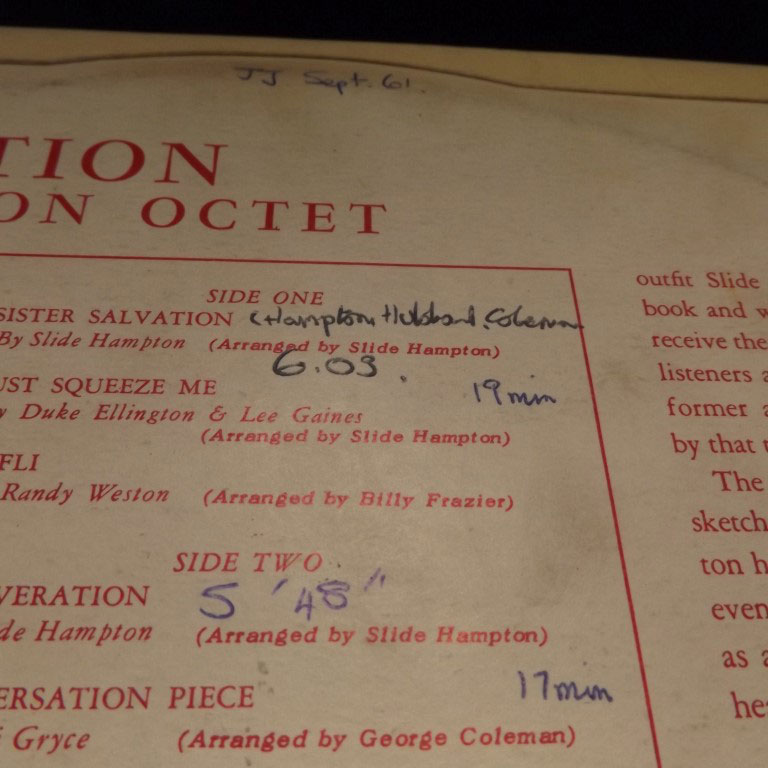 JJ Sept. 61.
TION
ON OCTET
SIDE ONE
SISTER SALVATION (Hampton, Hubbard, Coleman
By Slide Hampton (Arranged by Slide Hampton)
6.03.
UST SQUEEZE ME 19 min
y Duke Ellington & Lee Gaines
(Arranged by Slide Hampton)
FLI
Randy Weston (Arranged by Billy Frazier)
SIDE TWO
VERATION 5 '48"
de Hampton (Arranged by Slide Hampton)
ERSATION PIECE 17 min
i Gryce (Arranged by George Coleman)
outfit Slide
book and w
receive the
listeners a
former a
by that t
The
sketch
ton h
even
as a
he